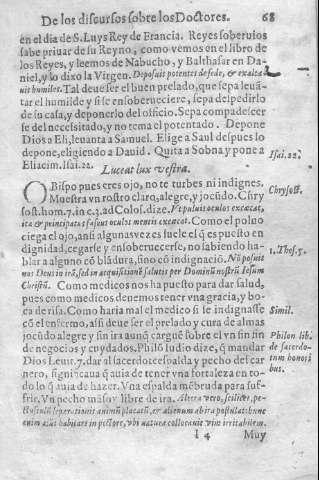 De los discursos sobre los Doctores. 68
en el dia de S. Luys Rey de Francia. Reyes soberuios
sabe priuar de su Reyno, como vemos en el libro de
los Reyes, y leemos de Nabucho, y Balthasar en Da-
niel, y lo dixo la Virgen. Deposuit potentes de sede, & exalta-
uit humiles. Tal deue ser el buen prelado, que sepa leuã-
tar el humilde y si se ensoberueciere, sepa despedirlo
de su casa, y deponerlo del officio. Sepa compadescer
se del necessitado, y no tema el potentado. Depone
Dios a Eli, leuanta a Samuel. Elige a Saul despues lo
depone, eligiendo a Dauid. Quita a Sobna y pone a
Eliacim. Isai. 22.
Isai. 22.
Luceat lux vestra.
OBispo pues eres ojo, no te turbes ni indignes.
Muestra vn rostro claro, alegre, y jocũdo. Chry
Chrysost.
sost. hom. 7. in c. 3. ad Colos. dize, Vt puluis oculos excæcat,
ita & principatus fastus oculos mentis excæcat. Como el poluo
ciega el ojo, ansi algunas vezes suele el q̃ es puesto en
dignidad, cegarse y ensoberuecerse, no sabiendo ha-
blar a alguno cõ blãdura, sino cõ indignaciõ. Nõ posuit
1. Thes. 5.
nos Deus in irã, sed in acquisitionẽ salutis per Dominũ nostrũ Iesum
Christũ. Como medicos nos ha puesto para dar salud,
pues como medicos deuemos tener vna gracia, y bo-
ca de risa. Como haria mal el medico si se indignasse
Simil.
cõ el enfermo, assi deue ser el prelado y cura de almas
jocũdo alegre y sin ira aunq̃ cargue sobre el vn sin fin
de negocios y cuydados. Philõ Iudio dize, q̃ mandar
Philon lib.
de sacerdo-
tum honori
bus.
Dios Leuit. 7. dar al sacerdote espalda y pecho del car
nero, significaua q̃ auia de tener vna fortaleza en to-
do lo q̃ auia de hazer. Vna espalda mẽbruda para suf-
frir. Vn pecho mãso y libre de ira.
enim
I 4 Muy